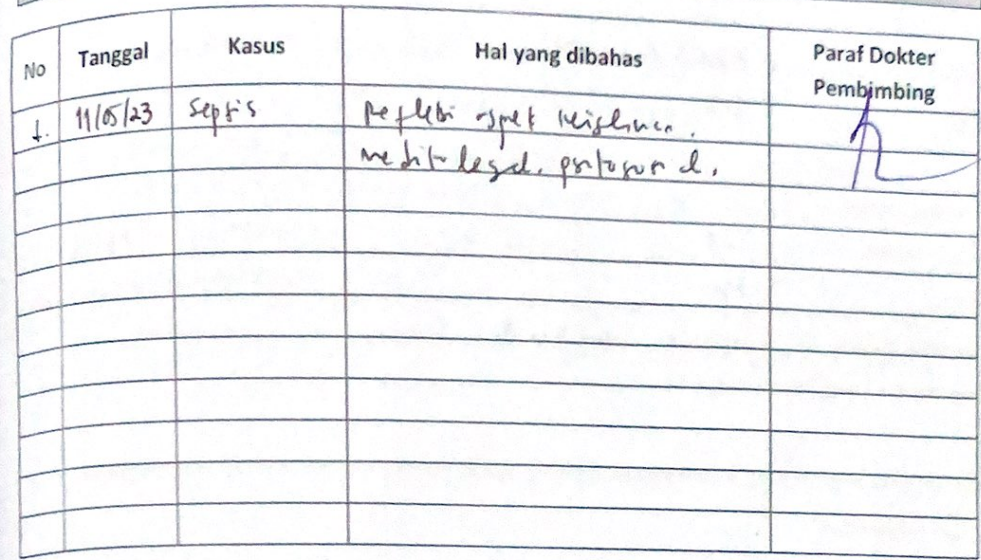 No Tanggal Kasus Hal yang dibahas Paraf Dokter
Pembimbing
1. 11/05/23 Sepsis Refleksi aspek keislaman.
medikolegal. profesional.